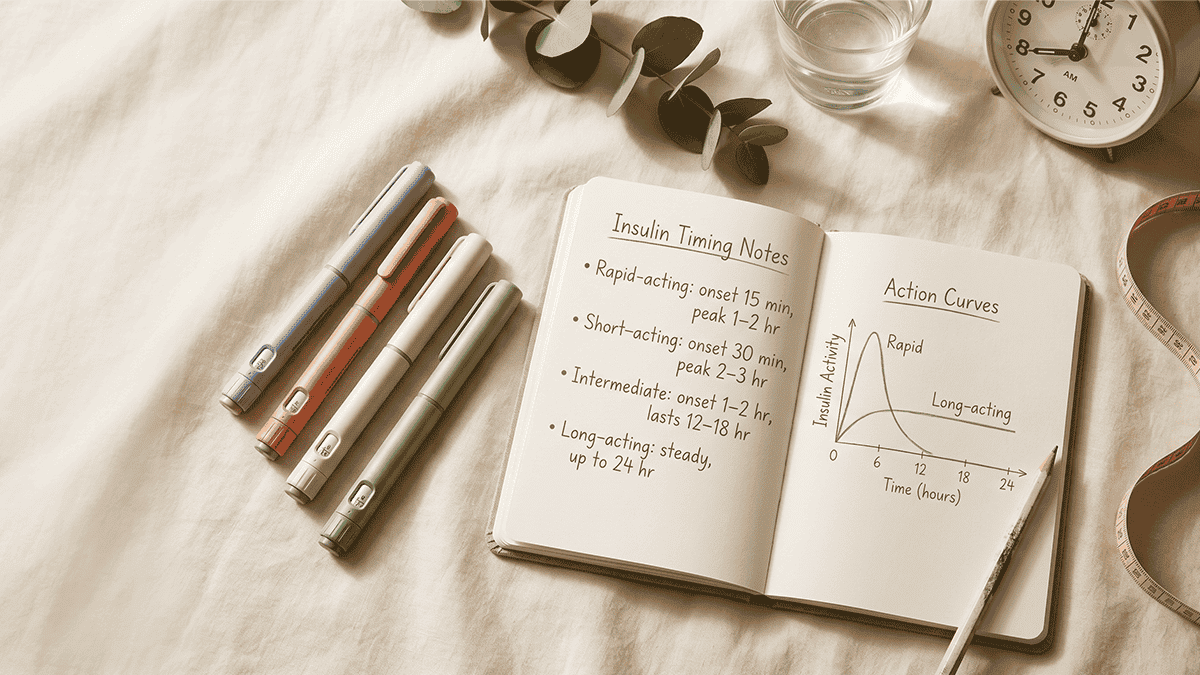 Insulin Timing Notes
• Rapid-acting: onset 15 min,
peak 1–2 hr
• Short-acting: onset 30 min,
peak 2–3 hr
• Intermediate: onset 1–2 hr,
lasts 12–18 hr
• Long-acting: steady,
up to 24 hr
Action Curves
Insulin Activity
Rapid
Long-acting
0 6 12 18 24
Time (hours)
1
2
3
4
5
6
7
8
9
AM